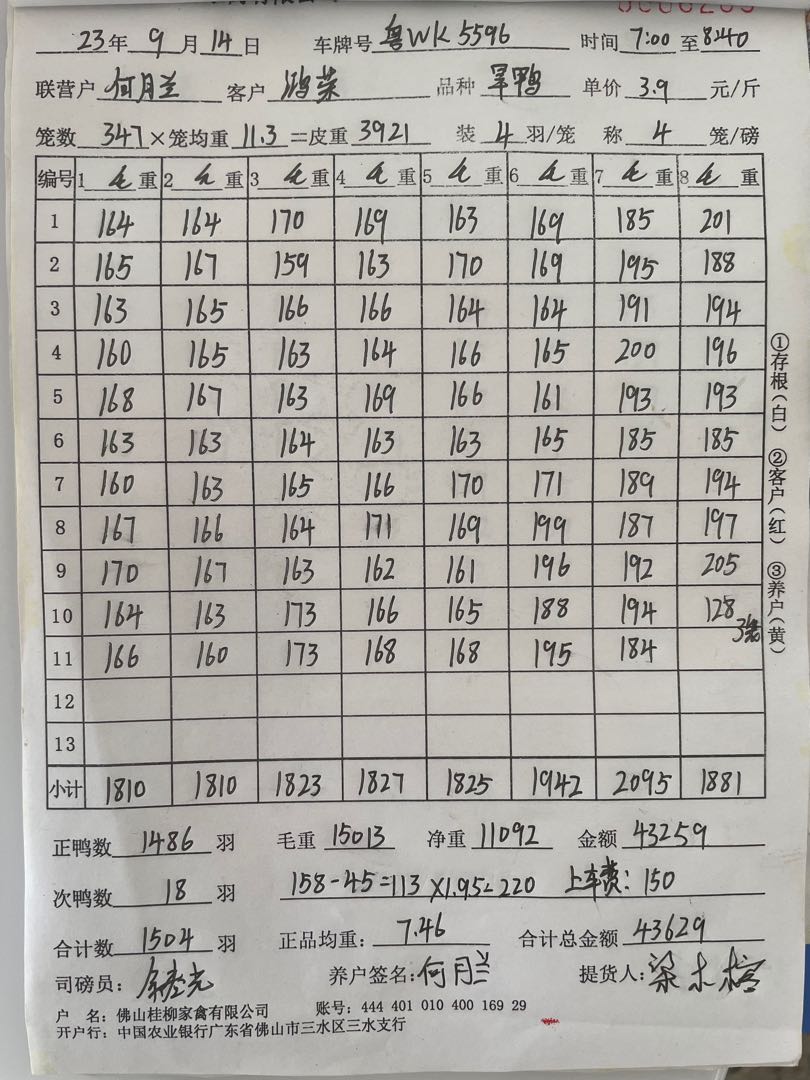 23年 9 月 14 日 车牌号 粤WK5596 时间 7:00 至 8:40
联营户 何月兰 客户 鸿荣 品种 旱鸭 单价 3.9 元/斤
笼数 347 ×笼均重 11.3 =皮重 3921 装 4 羽/笼 称 4 笼/磅
编号 1 毛 重 2 毛 重 3 毛 重 4 毛 重 5 毛 重 6 毛 重 7 毛 重 8 毛 重
1 164 164 170 169 163 169 185 201
2 165 167 159 163 170 169 195 188
3 163 165 166 166 164 164 191 194
4 160 165 163 164 166 165 200 196
5 168 167 163 169 166 161 193 193
6 163 163 164 163 163 165 185 185
7 160 163 165 166 170 171 189 194
8 167 166 164 171 169 199 187 197
9 170 167 163 162 161 196 192 205
10 164 163 173 166 165 188 194 128
11 166 160 173 168 168 195 184
12
13
小计 1810 1810 1823 1827 1825 1942 2095 1881
①存根(白) ②客户(红) ③养户(黄)
正鸭数 1486 羽 毛重 15013 净重 11092 金额 43259
次鸭数 18 羽 158-45=113×1.95=220 上车费:150
合计数 1504 羽 正品均重: 7.46 合计总金额 43629
司磅员: 养户签名: 何月兰 提货人:
户 名: 佛山桂柳家禽有限公司 账号: 444 401 010 400 169 29
开户行: 中国农业银行广东省佛山市三水区三水支行